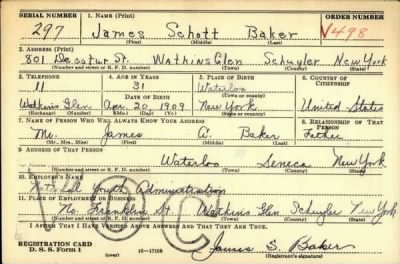 SERIAL NUMBER 1. NAME (Print) ORDER NUMBER
297 James Schott Baker V498
(First) (Middle) (Last)
2. ADDRESS (Print)
801 Decatur St. Watkins Glen Schuyler New York
(Number and street or R. F. D. number) (Town) (County) (State)
3. TELEPHONE 4. AGE IN YEARS 5. PLACE OF BIRTH 6. COUNTRY OF CITIZENSHIP
11 31 Waterloo
DATE OF BIRTH (Town or county)
Watkins Glen Apr. 20, 1909 New York United States
(Exchange) (Number) (Mo.) (Day) (Yr.) (State or country)
7. NAME OF PERSON WHO WILL ALWAYS KNOW YOUR ADDRESS 8. RELATIONSHIP OF THAT PERSON
Mr. James A. Baker Father
(Mr., Mrs., Miss) (First) (Middle) (Last)
9. ADDRESS OF THAT PERSON
Waterloo Seneca New York
(Number and street or R. F. D. number) (Town) (County) (State)
10. EMPLOYER'S NAME
National Youth Administration
11. PLACE OF EMPLOYMENT OR BUSINESS
No. Franklin St. Watkins Glen Schuyler New York
(Number and street or R. F. D. number) (Town) (County) (State)
I AFFIRM THAT I HAVE VERIFIED ABOVE ANSWERS AND THAT THEY ARE TRUE.
REGISTRATION CARD
D. S. S. Form 1 (over) 16—17105 James S. Baker
(Registrant's signature)